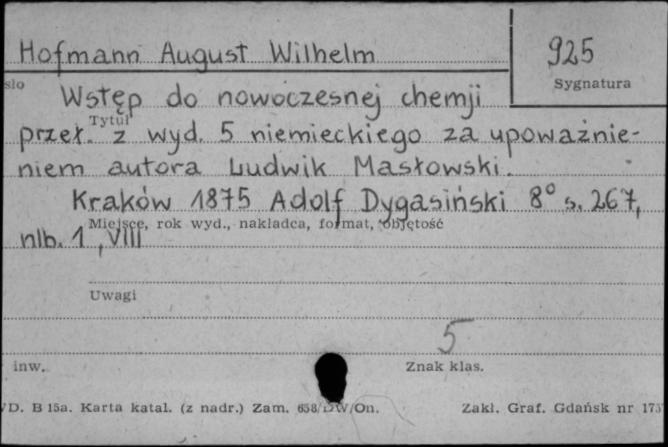 Hofmann August Wilhelm
925
sło
Sygnatura
Wstęp do nowoczesnej chemji
Tytuł
przeł. z wyd. 5 niemieckiego za upoważnie-
niem autora Ludwik Masłowski.
Kraków 1875 Adolf Dygasiński 8° s. 267,
Miejsce, rok wyd., nakładca, format, objętość
nlb. 1, VIII
Uwagi
5
inw.
Znak klas.
D. B 15a. Karta katal. (z nadr.) Zam. 658/DW/On.
Zakł. Graf. Gdańsk nr 173